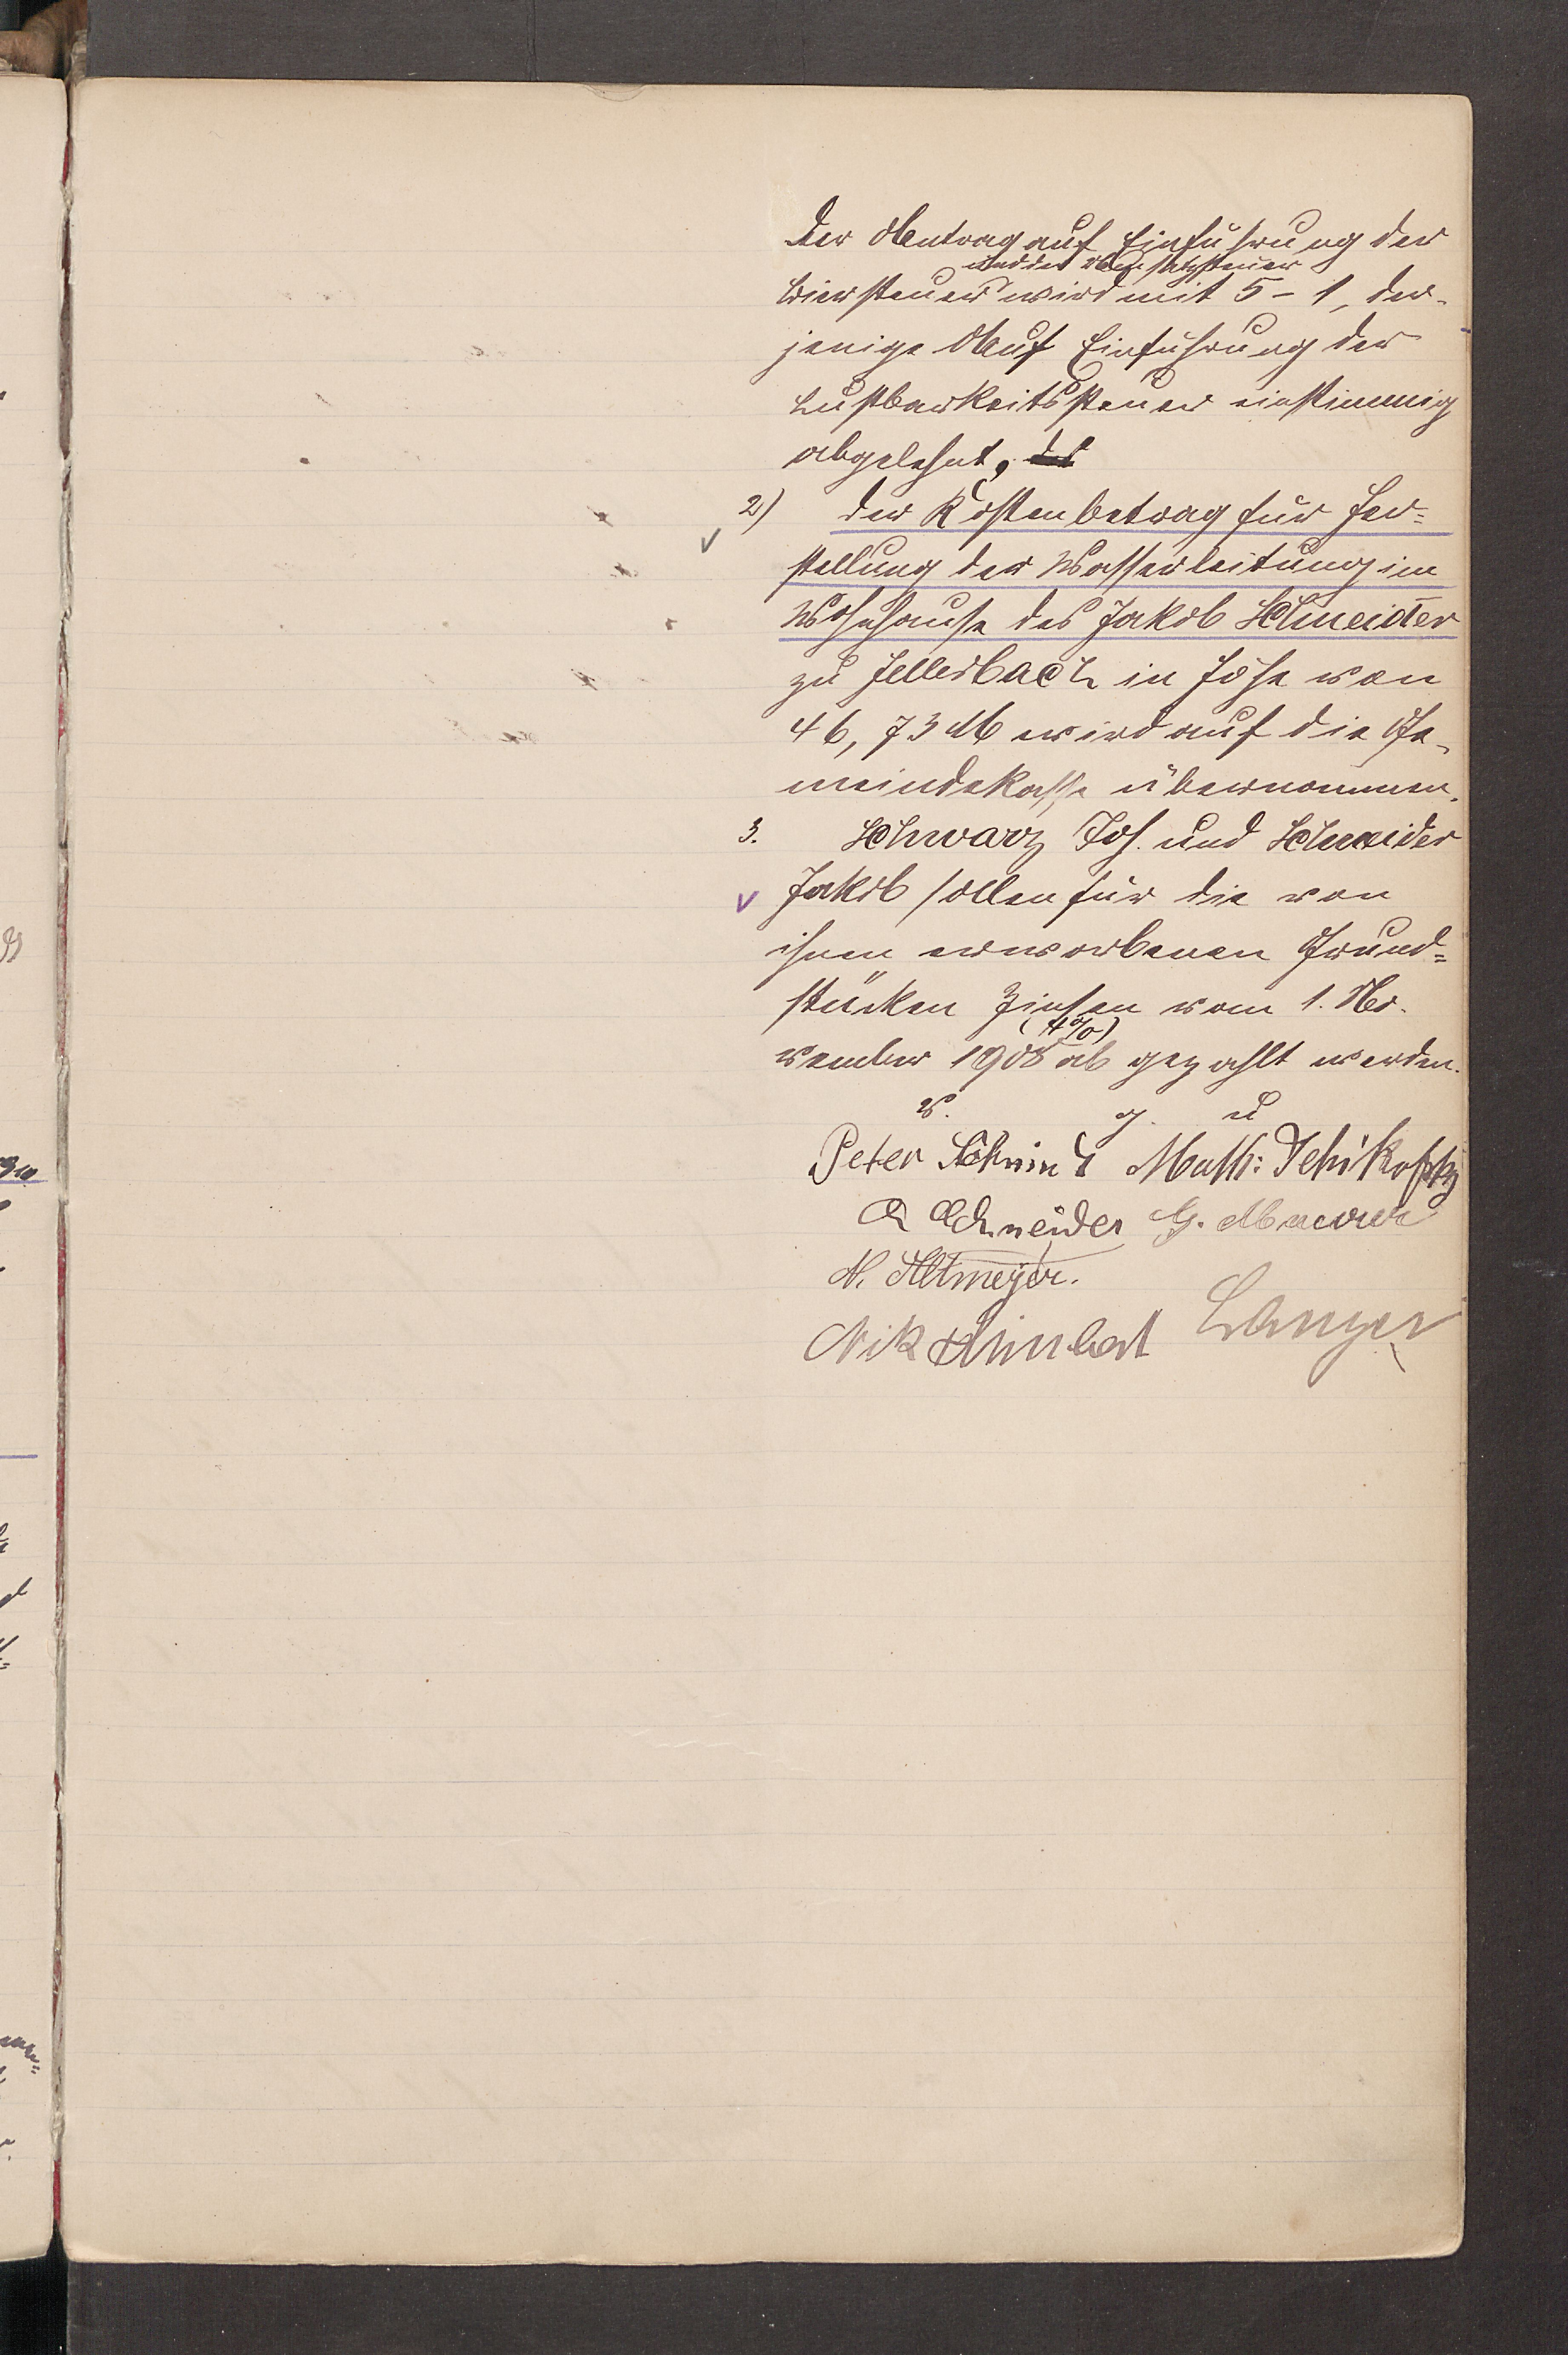 Der Antrag auf Einführung der
und der Umsatzsteuer
Biersteuer wird mit 5 - 1, der-
jenige Auf Einführung der
Lustbarkeitssteuer einstimmig
abgelehnt,
2) Der Kostenbetrag für Her=
stellung der Wasserleitung im
Wohnhause des Jakob Schneider
zu Hellerbach in Höhe von
46,73 M wird auf die Ge-
meindekasse übernommen.
3. Schwarz Joh. und Schneider
Jakob sollen für die von
ihnen erworbenen Grund=
stücken Zinsen vom 1. No-
(4%)
vember 1908 ab gezahlt werden.
v. g. u
Peter Schmidt Math:
Schneider G.
N. Altmeyer.
Nik